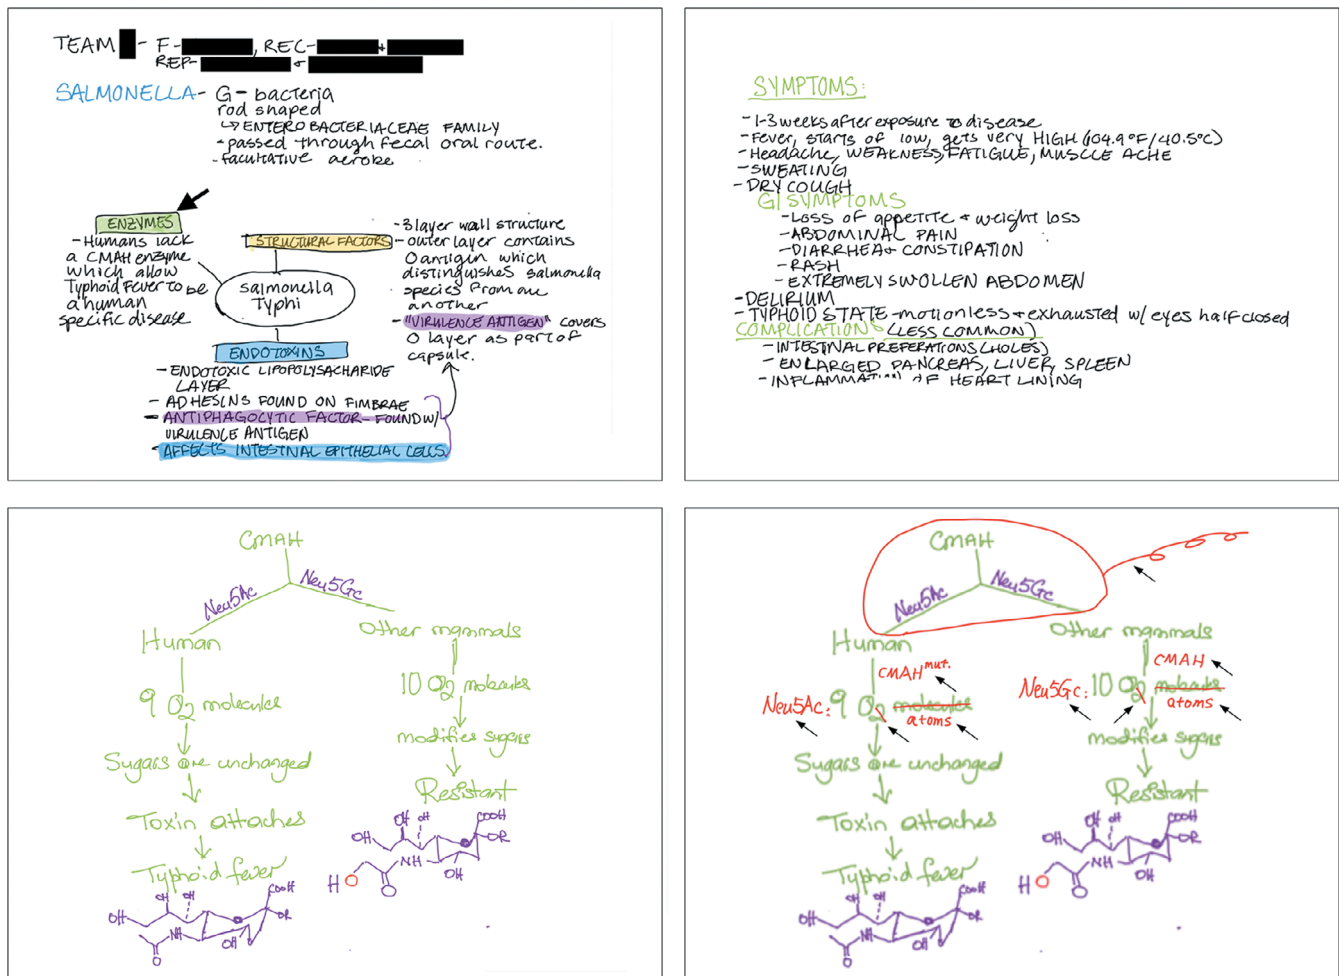 TEAM - F- , REC- +
REP- +
SALMONELLA - G- bacteria
rod shaped
↳ ENTEROBACTERIACEAE FAMILY
- passed through fecal oral route.
- facultative aerobe
ENZYMES
- Humans lack
a CMAH enzyme
which allow
Typhoid Fever to be
a human
specific disease
STRUCTURAL FACTORS
- 3 layer wall structure
- outer layer contains
O antigin which
distinguishes salmonella
species from one
another
- "VIRULENCE ANTIGEN" covers
O layer as part of
capsule.
salmonella
Typhi
ENDOTOXINS
- ENDOTOXIC LIPOPOLYSACHARIDE
LAYER
- ADHESINS FOUND ON FIMBRAE
- ANTIPHAGOCYTIC FACTOR - FOUND W/
VIRULENCE ANTIGEN
- AFFECTS INTESTINAL EPITHELIAL CELLS
SYMPTOMS:
- 1-3 weeks after exposure to disease
- Fever, starts of low, gets very HIGH (104.9°F/40.5°C)
- Headache, WEAKNESS, FATIGUE, MUSCLE ACHE
- SWEATING
- DRY COUGH
GI SYMPTOMS
- LOSS OF appetite + weight loss
- ABDOMINAL PAIN
- DIARRHEA + CONSTIPATION
- RASH
- EXTREMELY SWOLLEN ABDOMEN
- DELIRIUM
- TYPHOID STATE - motionless + exhausted w/ eyes half closed
COMPLICATIONS (LESS COMMON)
- INTESTINAL PREFERATIONS (HOLES)
- ENLARGED PANCREAS, LIVER, SPLEEN
- INFLAMMATION OF HEART LINING
CMAH
Neu5Ac Neu5Gc
Human
9 O2 molecules
Sugars are unchanged
Toxin attaches
Typhoid fever
OH OH OH COOH
OR
NH OH
O
Other mammals
10 O2 molecules
modifies sugars
Resistant
OH OH OH COOH
OR
NH OH
H O O
CMAH
Neu5Ac Neu5Gc
Human
CMAH mut.
Neu5Ac: 9 O2 molecules
atoms
Sugars are unchanged
Toxin attaches
Typhoid fever
OH OH OH COOH
OR
NH OH
O
Other mammals
CMAH
Neu5Gc: 10 O2 molecules
atoms
modifies sugars
Resistant
OH OH OH COOH
OR
NH OH
H O O